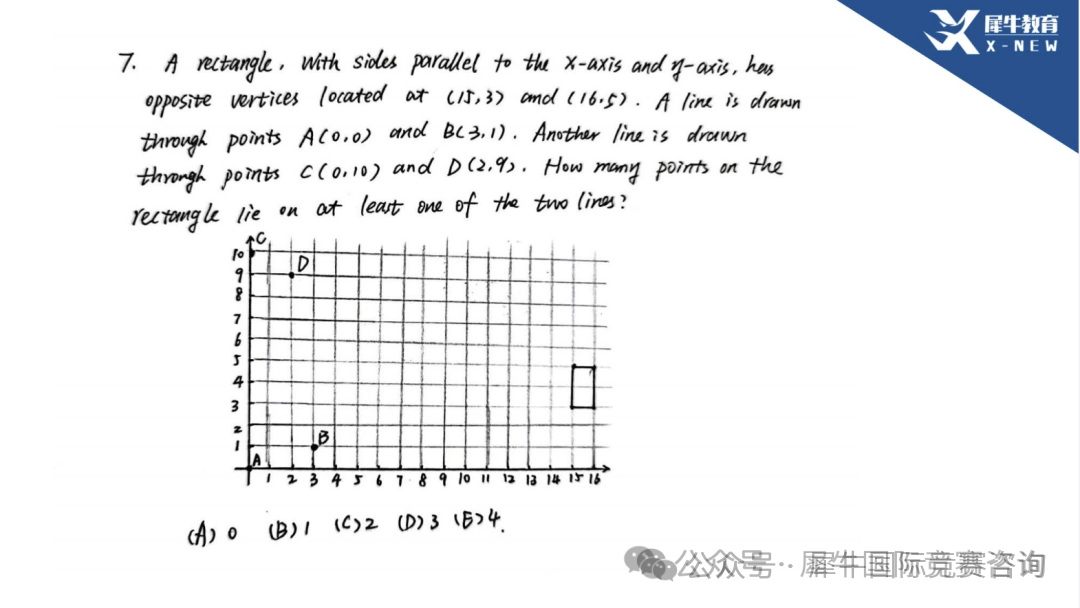 犀牛教育
X-NEW
7. A rectangle, with sides parallel to the x-axis and y-axis, has
opposite vertices located at (15,3) and (16.5). A line is drawn
through points A(0,0) and B(3,1). Another line is drawn
through points C(0,10) and D(2,9). How many points on the
rectangle lie on at least one of the two lines?
C
10
D
9
8
7
6
5
4
3
2
1
B
A
1 2 3 4 5 6 7 8 9 10 11 12 13 14 15 16
(A) 0 (B) 1 (C) 2 (D) 3 (E) 4.
公众号·犀牛国际竞赛咨询